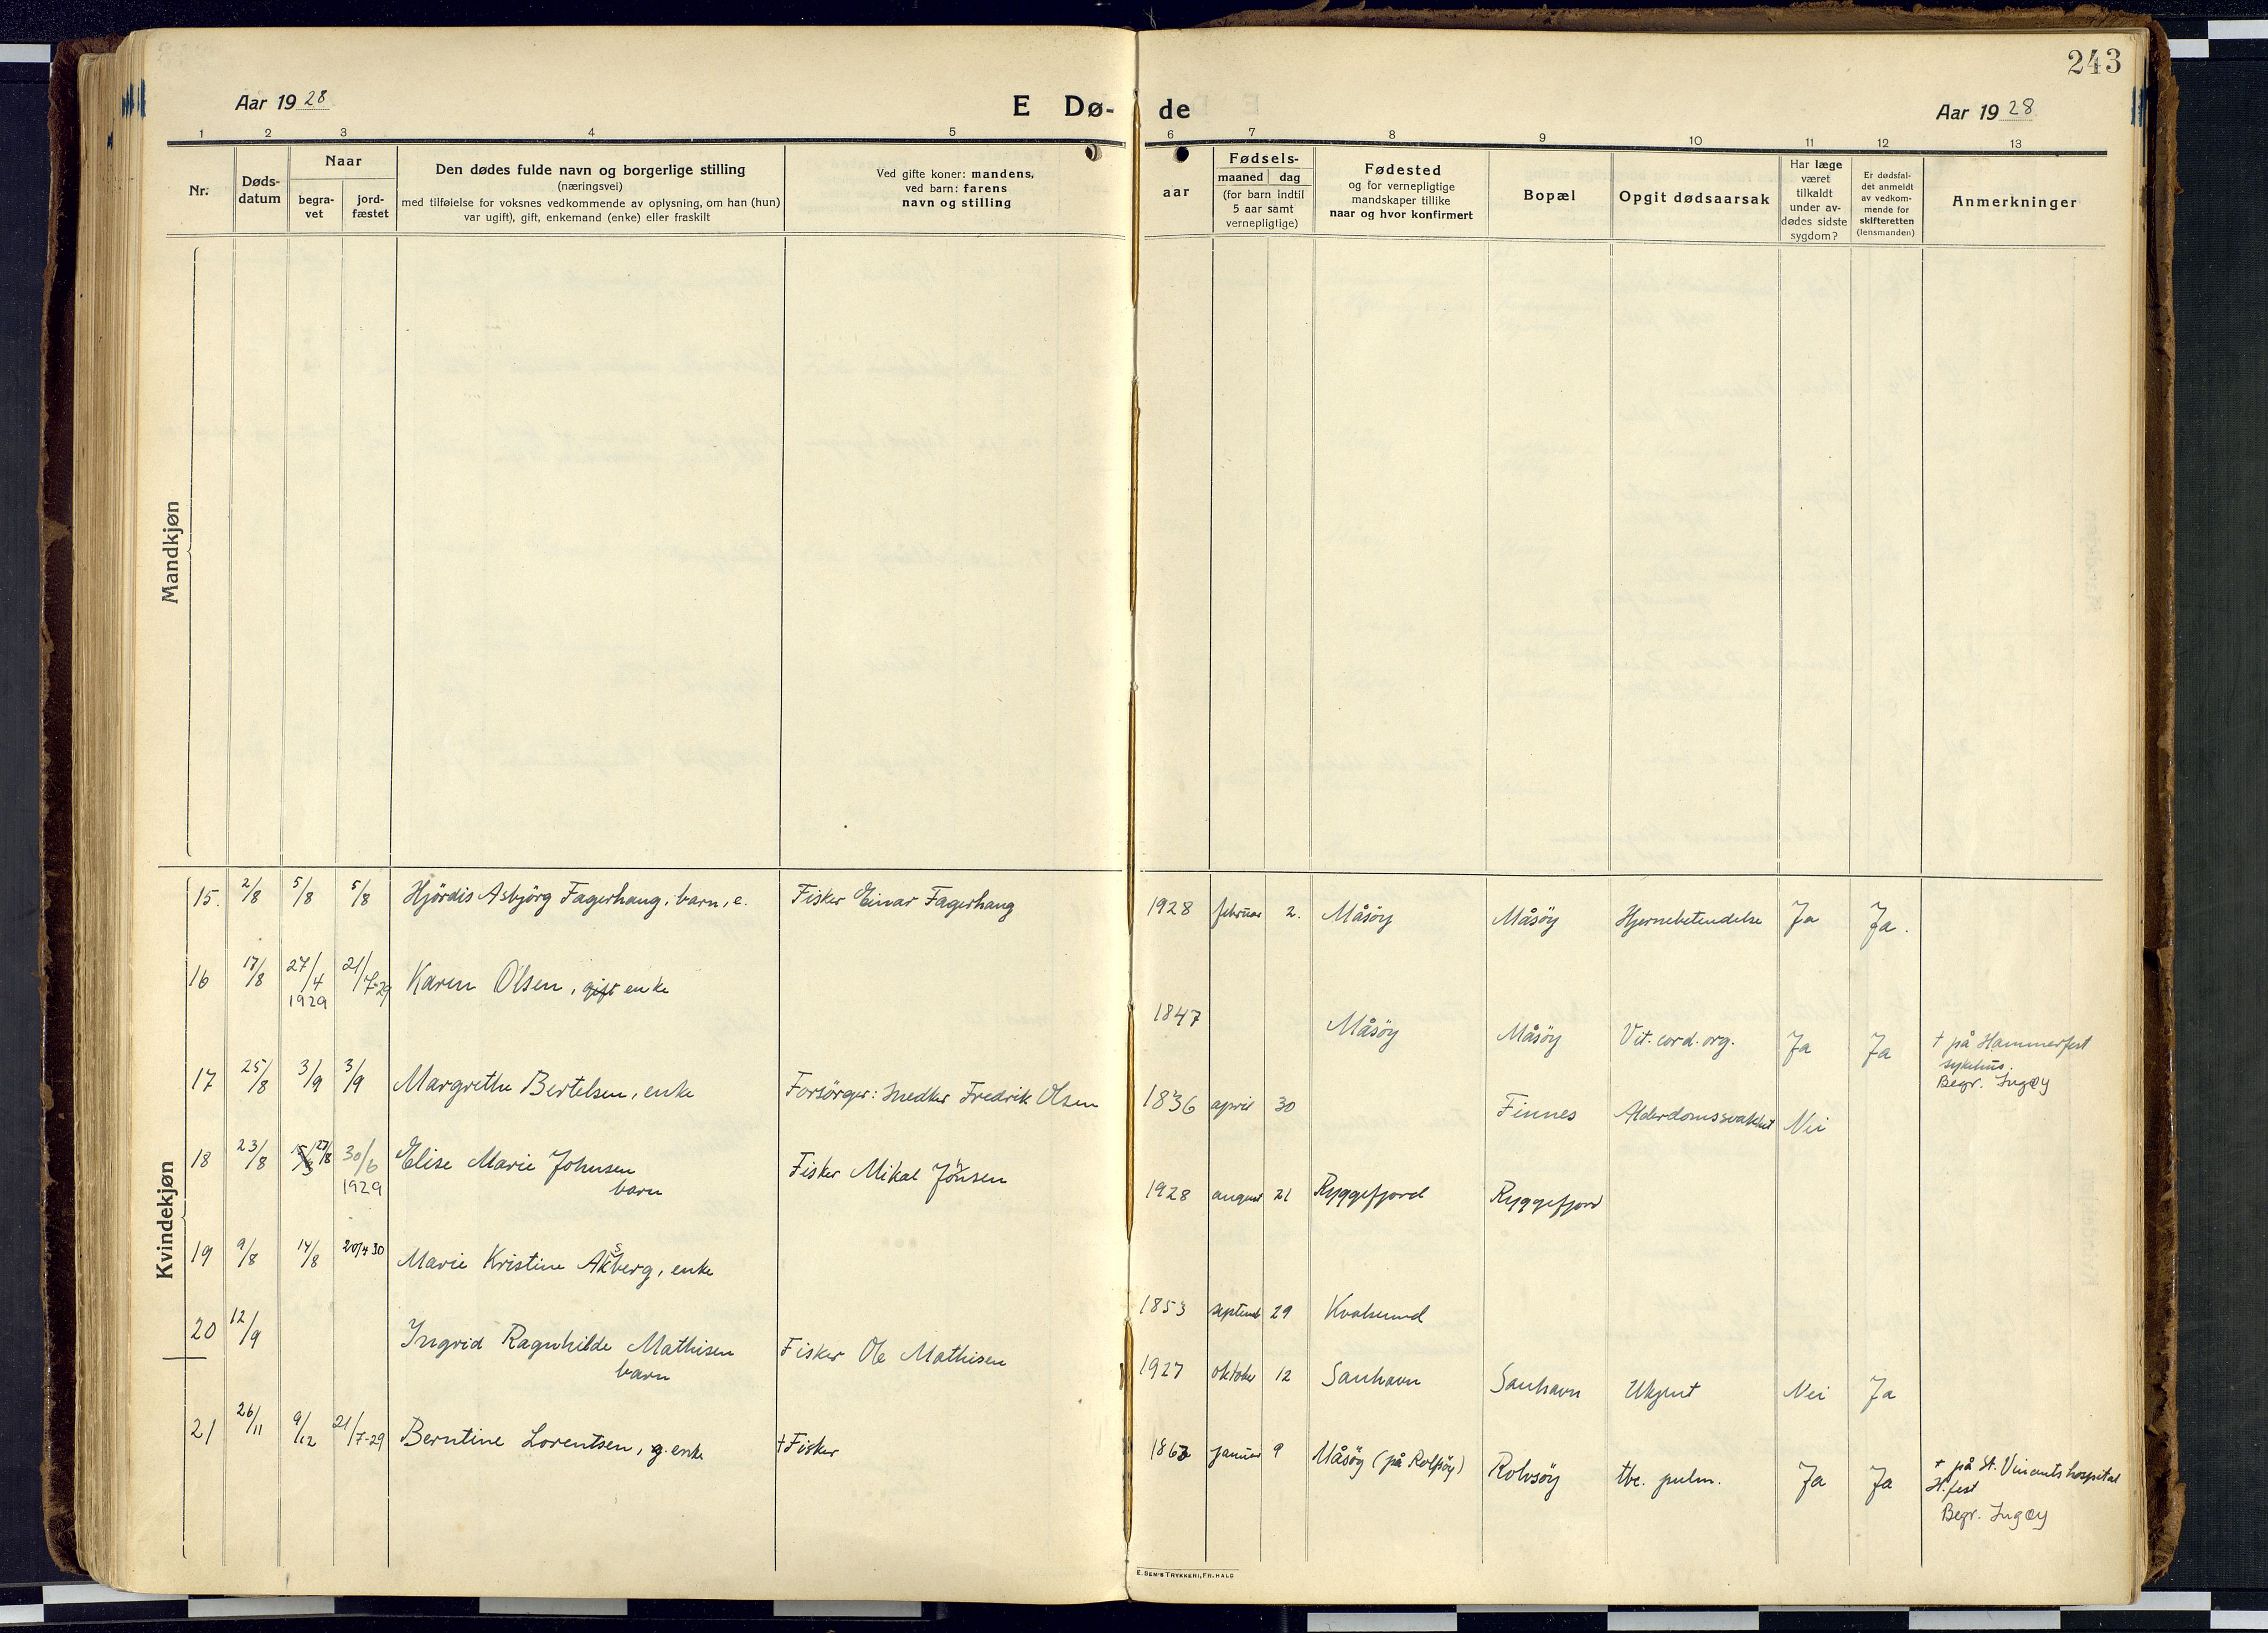 243
Aar 1928 E Dø- de Aar 1928
1 2 3 4 5 6 7 8 9 10 11 12 13
Nr.
Døds-
datum
Naar
begra-
vet
jord-
fæstet
Den dødes fulde navn og borgerlige stilling
(næringsvei)
med tilføielse for voksnes vedkommende av oplysning, om han (hun)
var ugift), gift, enkemand (enke) eller fraskilt
Ved gifte koner: mandens,
ved barn: farens
navn og stilling
aar
Fødsels-
maaned dag
(for barn indtil
5 aar samt
vernepligtige)
Fødested
og for vernepligtige
mandskaper tillike
naar og hvor konfirmert
Bopæl
Opgit dødsaarsak
Har læge
været
tilkaldt
under av-
dødes sidste
sygdom?
Er dødsfal-
det anmeldt
av vedkom-
mende for
skifteretten
(lensmanden)
Anmerkninger
Mandkjøn
Kvindekjøn
15. 2/8 5/8 5/8 Hjördis Asbjörg Fagerhaug, barn, e. Fisker Einar Fagerhaug 1928 februar 2. Måsöy Måsöy Hjernebetendelse Ja Ja.
16 17/8 27/4 1929 21/7-29 Karen Olsen, gift enke 1847 Måsöy Måsöy Vit. cord. org. Ja Ja † på Hammerfest
sykehus.
Begr. Ingøy
17 25/8 3/9 3/9 Margrethe Bertelsen, enke Forsörger: Snedker Fredrik Olsen 1836 april 30 Finnes Alderdomssvakhet Nei
18 23/8 27/8 30/6 1929 Elise Marie Johnsen
barn
Fisker Mikal Johnsen 1928 august 21 Ryggefjord Ryggefjord
19 9/8 14/8 20/4 30 Marie Kristine Aksberg, enke 1853 septemb 29 Kvalsund
20 12/9 Ingrid Ragnhilde Mathisen
barn
Fisker Ole Mathisen 1927 oktober 12 Sanhavn Sanhavn Ukjent Nei Ja
21 26/11 9/12 21/7-29 Berntine Lorentsen, g. enke † Fisker 1863 januar 9 Måsöy (på Rolfsöy) Rolvsöy tbc. pulm. Ja Ja † på St. Vincents hospital
H.fest
Begr. Ingøy
E. SEM'S TRYKKERI, FR.HALD